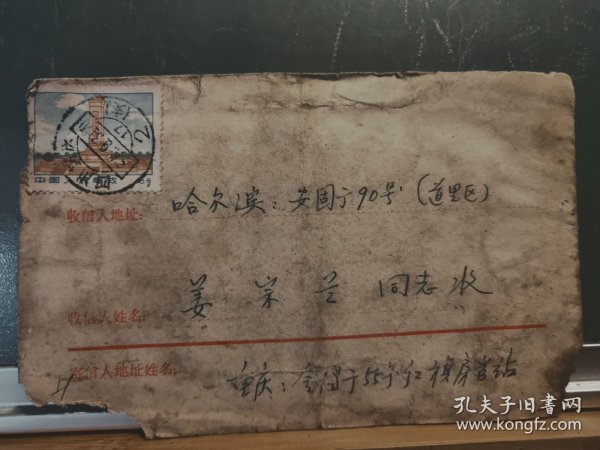 中国人民邮政 8分
收信人地址:
哈尔滨:安国广90号(道里区)
收信人姓名:
姜宗兰 同志收
寄信人地址姓名:
重庆:
孔夫子旧书网
www.kongfz.com